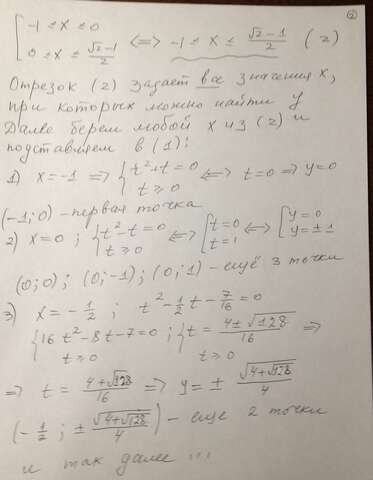 ②
[ -1 ≤ x ≤ 0
0 ≤ x ≤ (√2-1)/2 <=> -1 ≤ x ≤ (√2-1)/2 (2)
Отрезок (2) задает все значения x,
при которых можно найти y
Далее берем любой x из (2) и
подставляем в (1):
1) x=-1 => { t²+t=0 t≥0 <=> t=0 => y=0
(-1;0) - первая точка
2) x=0; { t²-t=0 t≥0 <=> [ t=0 t=1 <=> [ y=0 y=±1
(0;0); (0;-1); (0;1) - ещё 3 точки
3) x=-1/2; t²-1/2 t-7/16=0
{ 16t²-8t-7=0 t≥0 ; { t=(4±√128)/16 t≥0 =>
=> t=(4+√128)/16 => y=± √(4+√128)/4
(-1/2; ± √(4+√128)/4) - еще 2 точки
и так далее ...